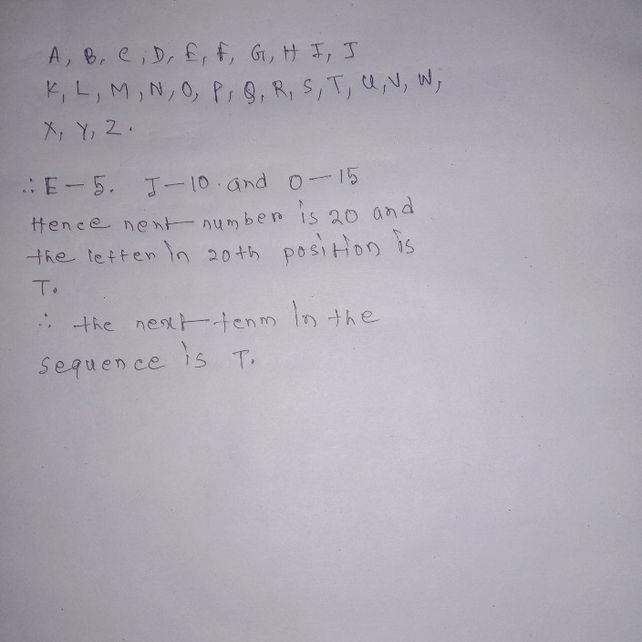 A, B, C, D, E, F, G, H I, J
K, L, M, N, O, P, Q, R, S, T, U, V, W,
X, Y, Z.
∴ E - 5. J - 10. and O - 15
Hence next number is 20 and
the letter in 20th position is
T.
∴ the next term in the
sequence is T.